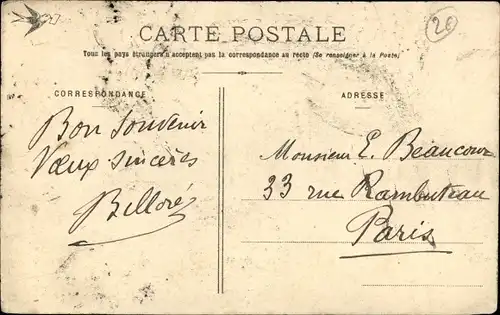 CARTE POSTALE
20
Tous les pays étrangers n'acceptent pas la correspondance au recto (Se renseigner à la Poste)
CORRESPONDANCE
Bon Souvenir
Vœux sincères
Belloré
ADRESSE
Monsieur E. Beaucour
33 rue Rambuteau
Paris